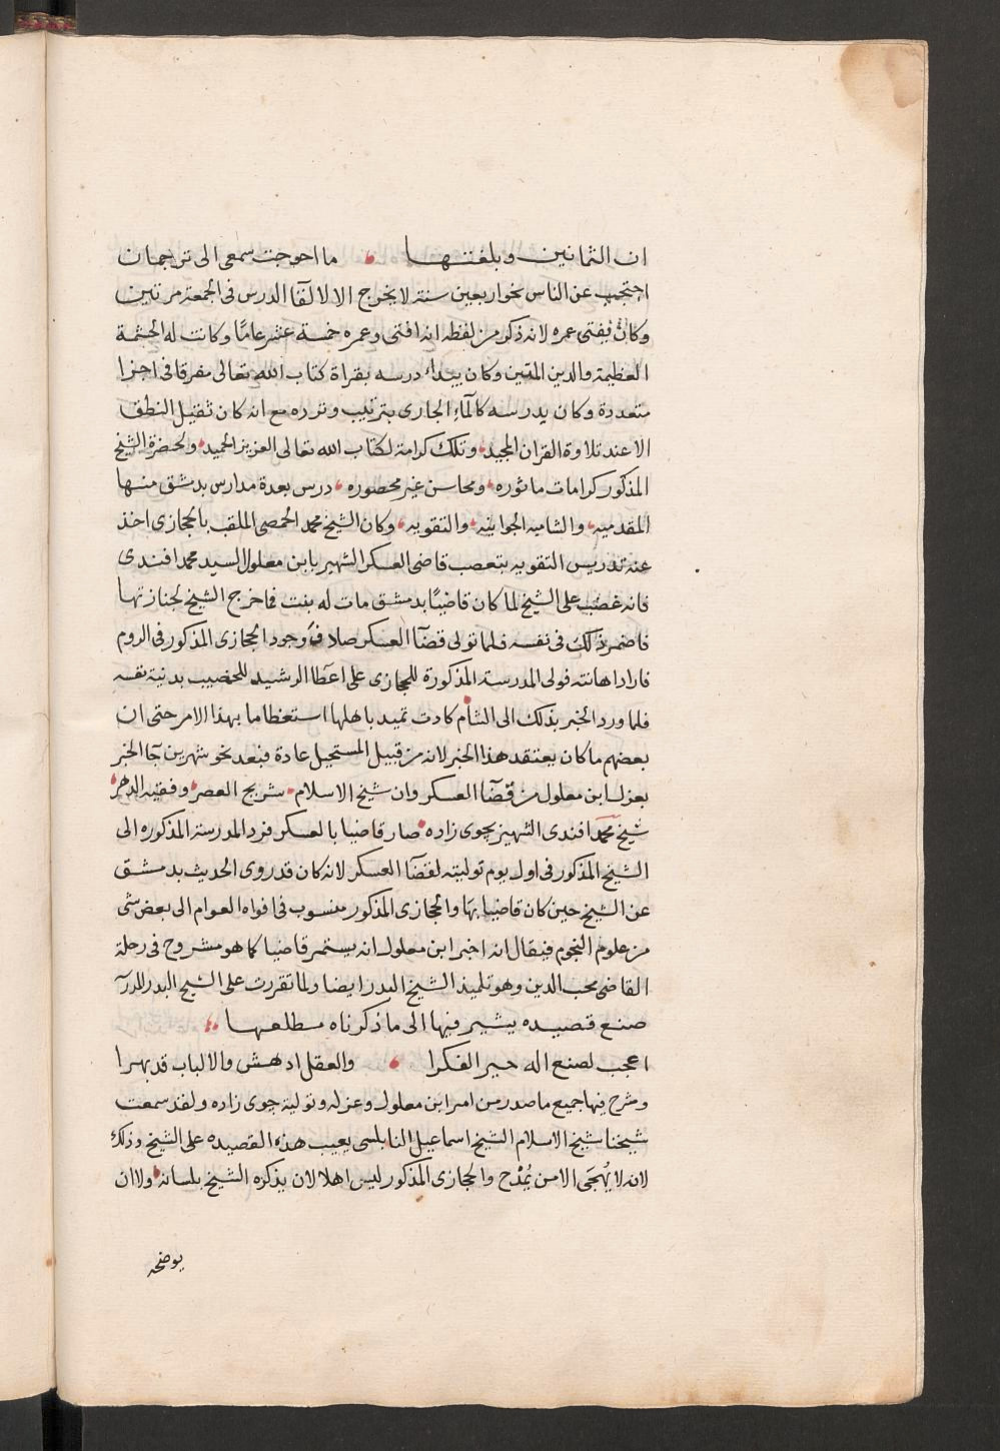 ان الثمانين وبلغتها ما احوجت سمعى الى ترجمان
احتجب عن الناس نحو اربعين سنة لا يخرج الا لالقا الدرس فى الجمعة مرتين
وكان يفتى عمره لانه ذكر من لفظه انه افتى وعمره خمسة عشر عامًا وكانت له الحشمة
العظيمة والدين المتين وكان يبداء درسه بقراة كتاب الله تعالى مفرقا فى اجزا
متعددة وكان يدرسه كالماء الجارى بترتيب وترده مع انه كان ثقيل النطق
الا عند تلاوة القران المجيد وتلك كرامة لكتاب الله تعالى العزيز الحميد ولحضرة الشيخ
المذكور كرامات ماثوره ومحاسن غير محصوره درس بعدة مدارس بدمشق منها
المقدميه والشاميه الجوانيه والتقويه وكان الشيخ محمد الحمصى الملقب بالحجازى اخذ
عنه تدريس التقويه بتعصب قاضى العسكر الشهير بابن معلول السيد محمد افندى
فانه غضب على الشيخ لما كان قاضيًا بدمشق مات له بنت فما خرج الشيخ لجنازتها
فاضمر ذلك فى نفسه فلما تولى قضآ العسكر صادف وجود الحجازى المذكور فى الروم
فاراد اهانته فولى المدرسة المذكورة للحجازى على اعطآ الرشيد للخصيب بدنية نفسه
فلما ورد الخبر بذلك الى الشام كادت تميد باهلها استعظاما بهذا الامر حتى ان
بعضهم ما كان يعتقد هذا الخبر لانه من قبيل المستحيل عادة فبعد نحو شهرين جآ الخبر
بعزل ابن معلول من قضآ العسكر وان شيخ الاسلام شريح العصر وفقيه الدهر
شيخ محمد افندى الشهير بجوى زاده صار قاضيا بالعسكر فرد المدرسة المذكوره الى
الشيخ المذكور فى اول يوم توليته لقضآ العسكر لانه كان قد روى الحديث بدمشق
عن الشيخ حين كان قاضيا بها والحجازى المذكور منسوب فى افواه العوام الى بعض شى
من علوم النجوم فيقال انه اخبر ابن معلول انه يستمر قاضيا كما هو مشروح فى رحلة
القاضى محب الدين وهو تلميذ الشيخ البدر ايضا ولما تقررت على الشيخ البدر المدرآ
صنع قصيده يشير فيها الى ما ذكرناه مطلعها
اعجب لصنع اله حير الفكرا والعقل ادهش والالباب قد بهرا
وشرح فيها جميع ما صدر من امر ابن معلول وعزله وتولية جوى زاده ولقد سمعت
شيخنا شيخ الاسلام الشيخ اسماعيل النابلسى يعيب هذه القصيده على الشيخ وذلك
لانه لا يُهجَى الا من يُمْدح والحجازى المذكور ليس اهلا لان يذكره الشيخ بلسانه ولا ان
يوضحه